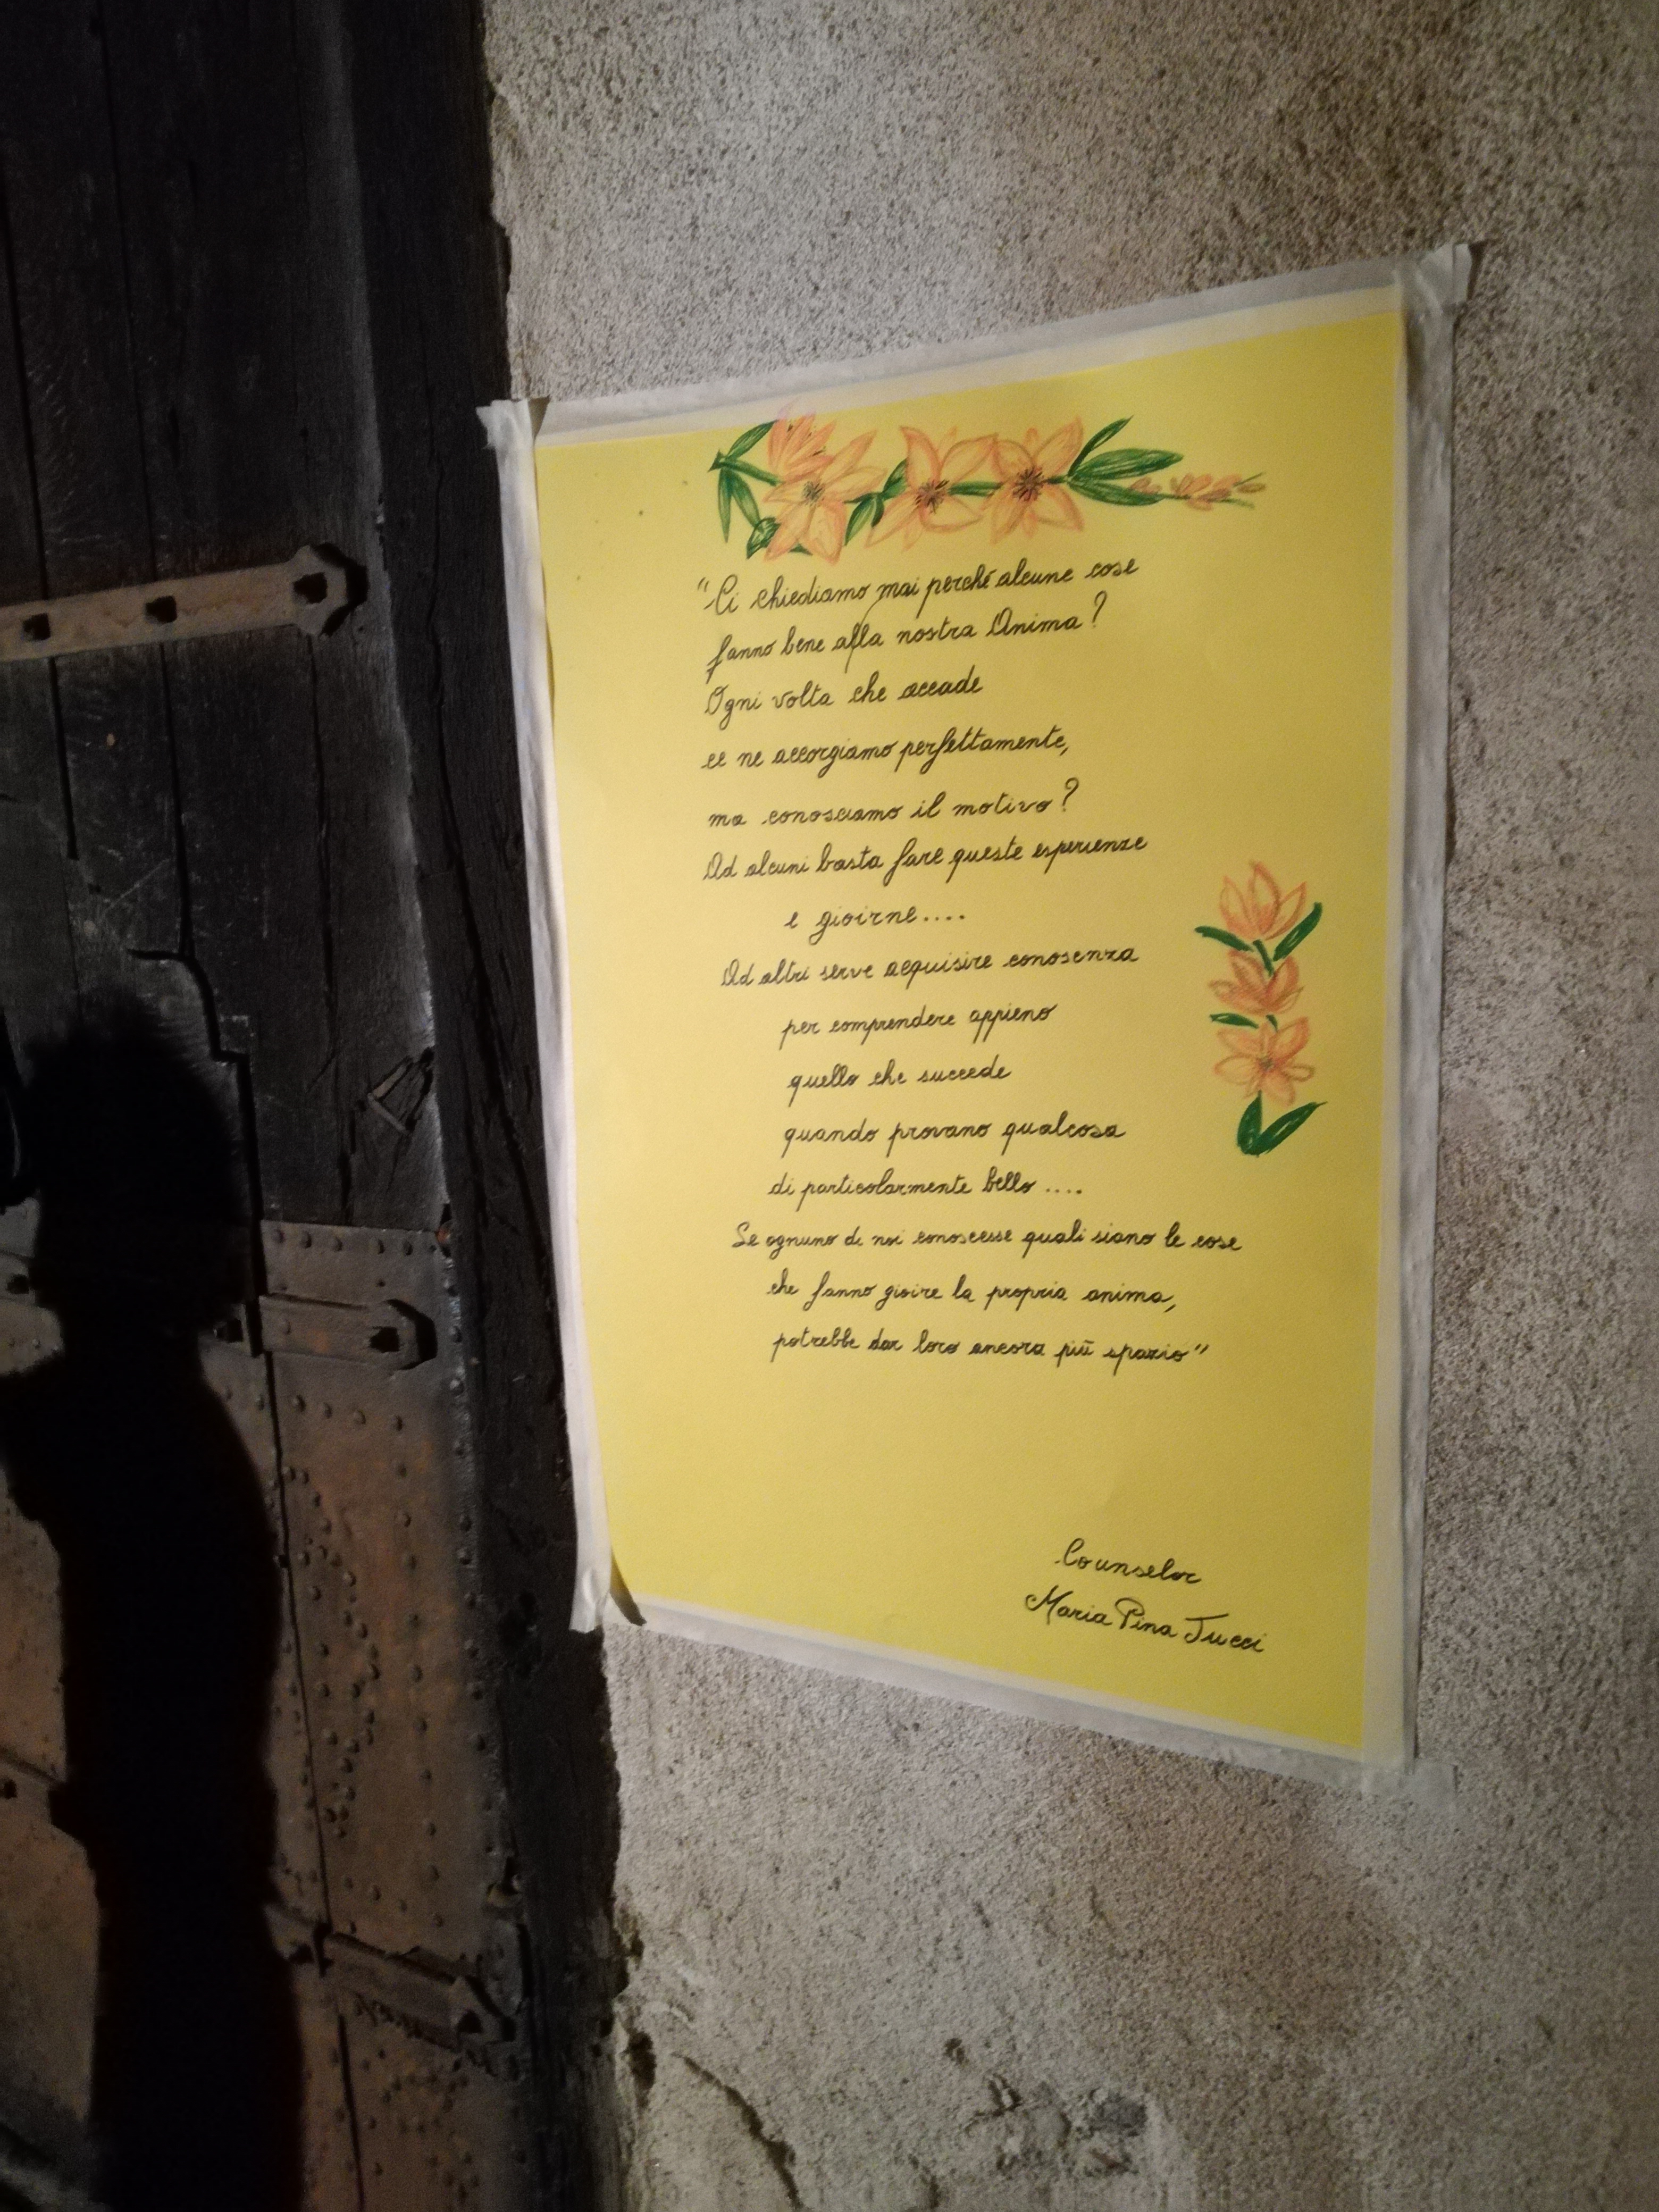 "Ci chiediamo mai perché alcune cose
fanno bene alla nostra Anima?
Ogni volta che accade
ce ne accorgiamo perfettamente,
ma conosciamo il motivo?
Ad alcuni basta fare queste esperienze
e gioirne....
Ad altri serve acquisire conosenza
per comprendere appieno
quello che succede
quando provano qualcosa
di particolarmente bello ....
Se ognuno di noi conoscesse quali siano le cose
che fanno gioire la propria anima,
potrebbe dar loro ancora più spazio"
Counselor
Maria Pina Tucci